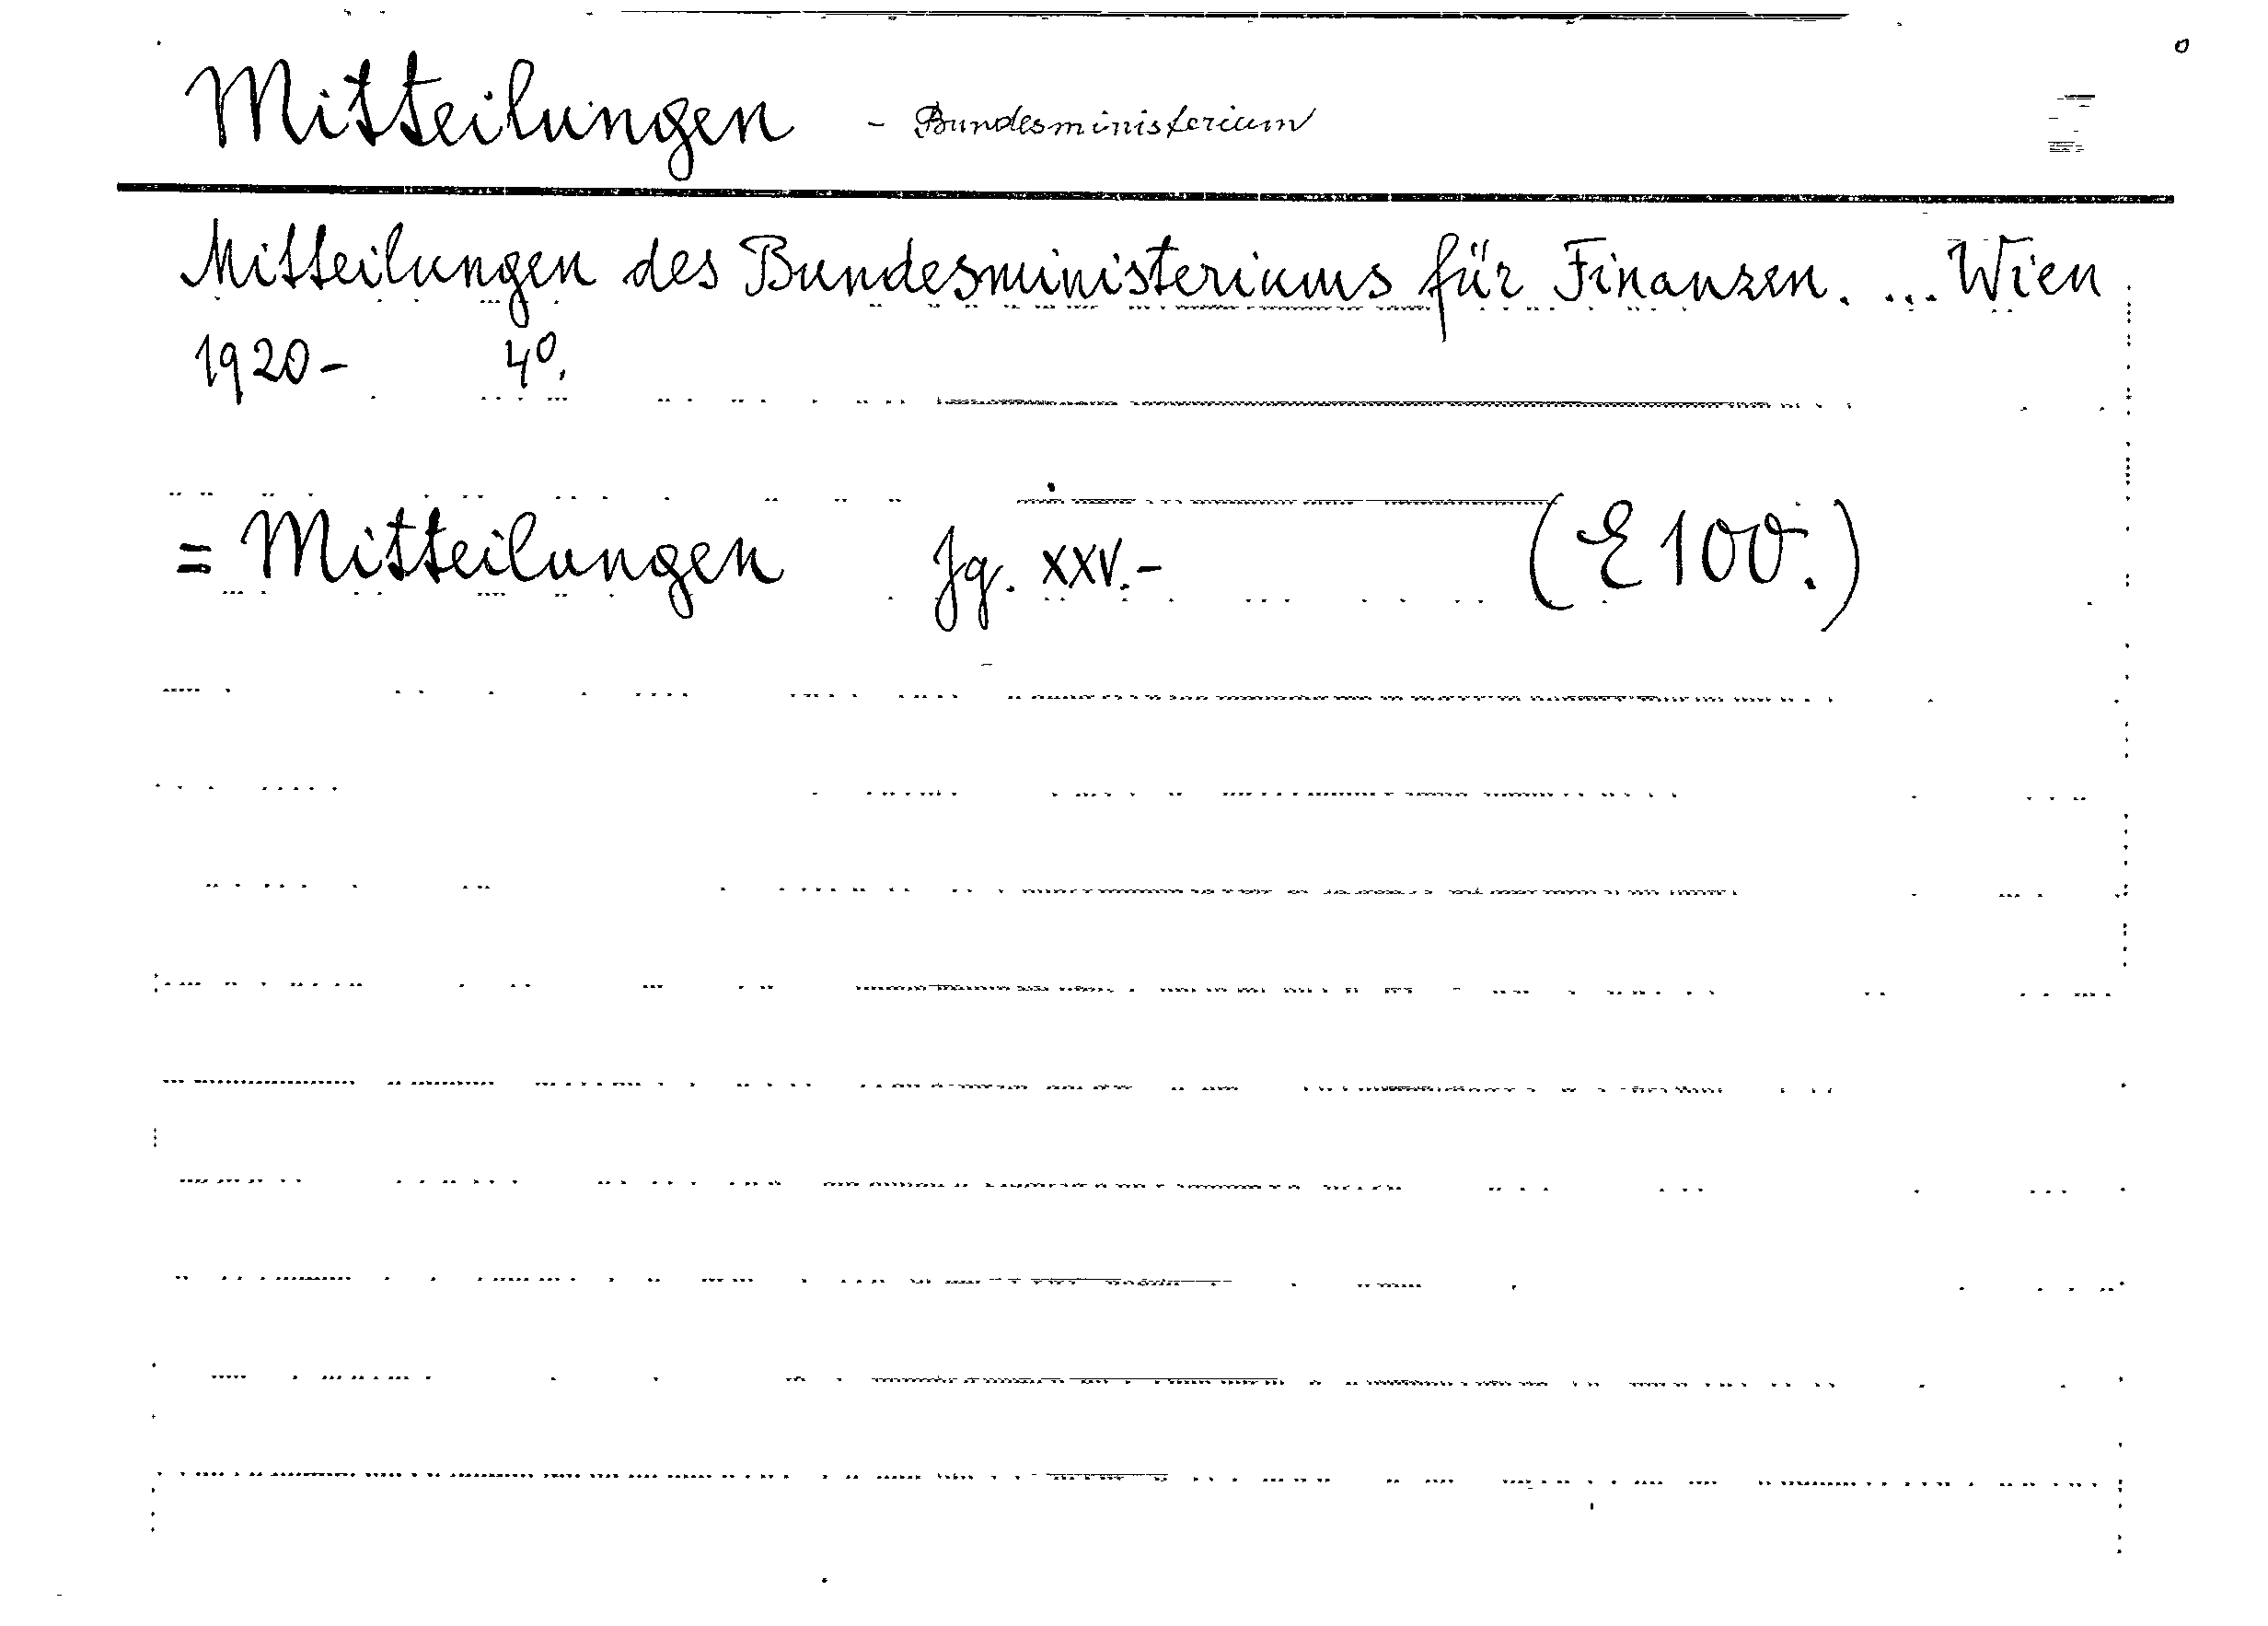 Mitteilungen - Bundesministerium
Mitteilungen des Bundesministeriums für Finanzen. ... Wien
1920- 4°.
= Mitteilungen Jg. XXV.- (E 100.)